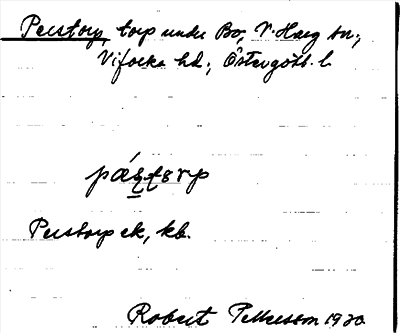 Perstorp, torp under Bo, V. Harg sn;
Vifolka hd; Östergötl. l.
Perstorp ek, kb.
Robert Pettersson 1920